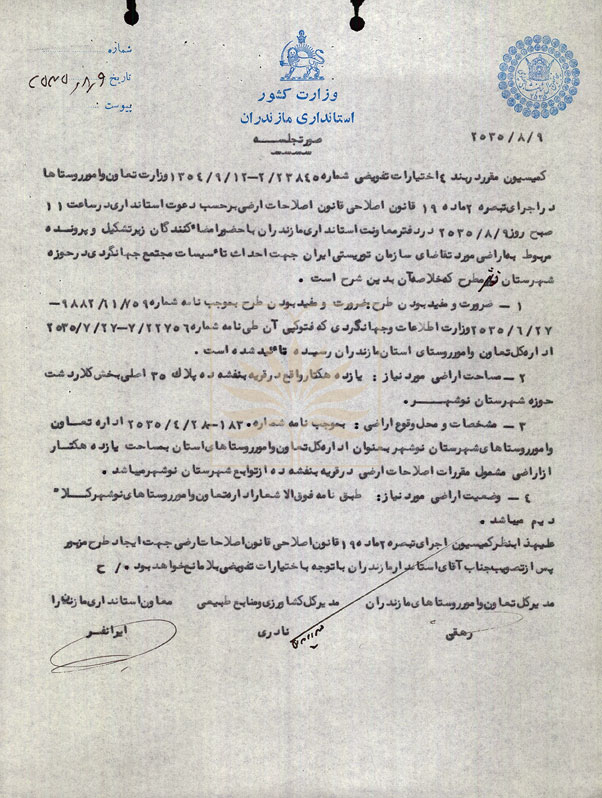 شماره
تاریخ ۲۵۳۵/۸/۹
پیوست
وزارت کشور
استانداری مازندران
۲۵۳۵/۸/۹
صورتجلسه
کمیسیون مقرر در بند ٤ اختیارات تفویضی شماره ۲۳۸٤۵/۲-۱۳۵٤/۹/۱۲ وزارت تعاون و امور روستاها
در اجرای تبصره ۲ ماده ۱۹ قانون اصلاحی قانون اصلاحات ارضی بر حسب دعوت استانداری در ساعت ۱۱
صبح روز ۲۵۳۵/۸/۹ در دفتر معاونت استانداری مازندران با حضور امضاء کنندگان زیر تشکیل و پرونده
مربوط به اراضی مورد تقاضای سازمان توریستی ایران جهت احداث تاسیسات مجتمع جهانگردی در حوزه
شهرستان مطرح که خلاصه آن بدین شرح است .
۱ - ضرورت و مفید بودن طرح : ضرورت و مفید بودن طرح بموجب نامه شماره
۲۵۳۵/٦/۲۷ وزارت اطلاعات و جهانگردی که فتوکپی آن طی نامه شماره ۲۲۷۵٦/۷-۲۵۳۵/۷/۲۷
اداره کل تعاون و امور روستای استان مازندران رسیده تائید شده است .
۲ - مساحت اراضی مورد نیاز : یازده هکتار واقع در قریه بنفشه ده پلاک ۳۵ اصلی بخش کلاردشت
حوزه شهرستان نوشهر .
۳ - مشخصات و محل وقوع اراضی : بموجب نامه شماره ۱۸۳۰-۲۵۳۵/٤/۲۸ اداره تعاون
و امور روستاهای شهرستان نوشهر بعنوان اداره کل تعاون و امور روستاهای استان بمساحت یازده هکتار
از اراضی مشمول مقررات اصلاحات ارضی در قریه بنفشه ده از توابع شهرستان نوشهر میباشد .
٤ - وضعیت اراضی مورد نیاز : طبق نامه فوق الاشعار اداره تعاون و امور روستاهای نوشهر کلا"
دیم میباشد .
علیهذا بنظر کمیسیون اجرای تبصره ۲ ماده ۱۹ قانون اصلاحی قانون اصلاحات ارضی جهت ایجاد طرح مزبور
پس از تصویب جناب آقای استاندار مازندران با توجه با ختیارات تفویضی بلامانع خواهد بود . / ح
مدیر کل تعاون و امور روستاهای مازندران مدیر کل کشاورزی و منابع طبیعی معاون استانداری مازندران
رهقی نادری ایرانفر